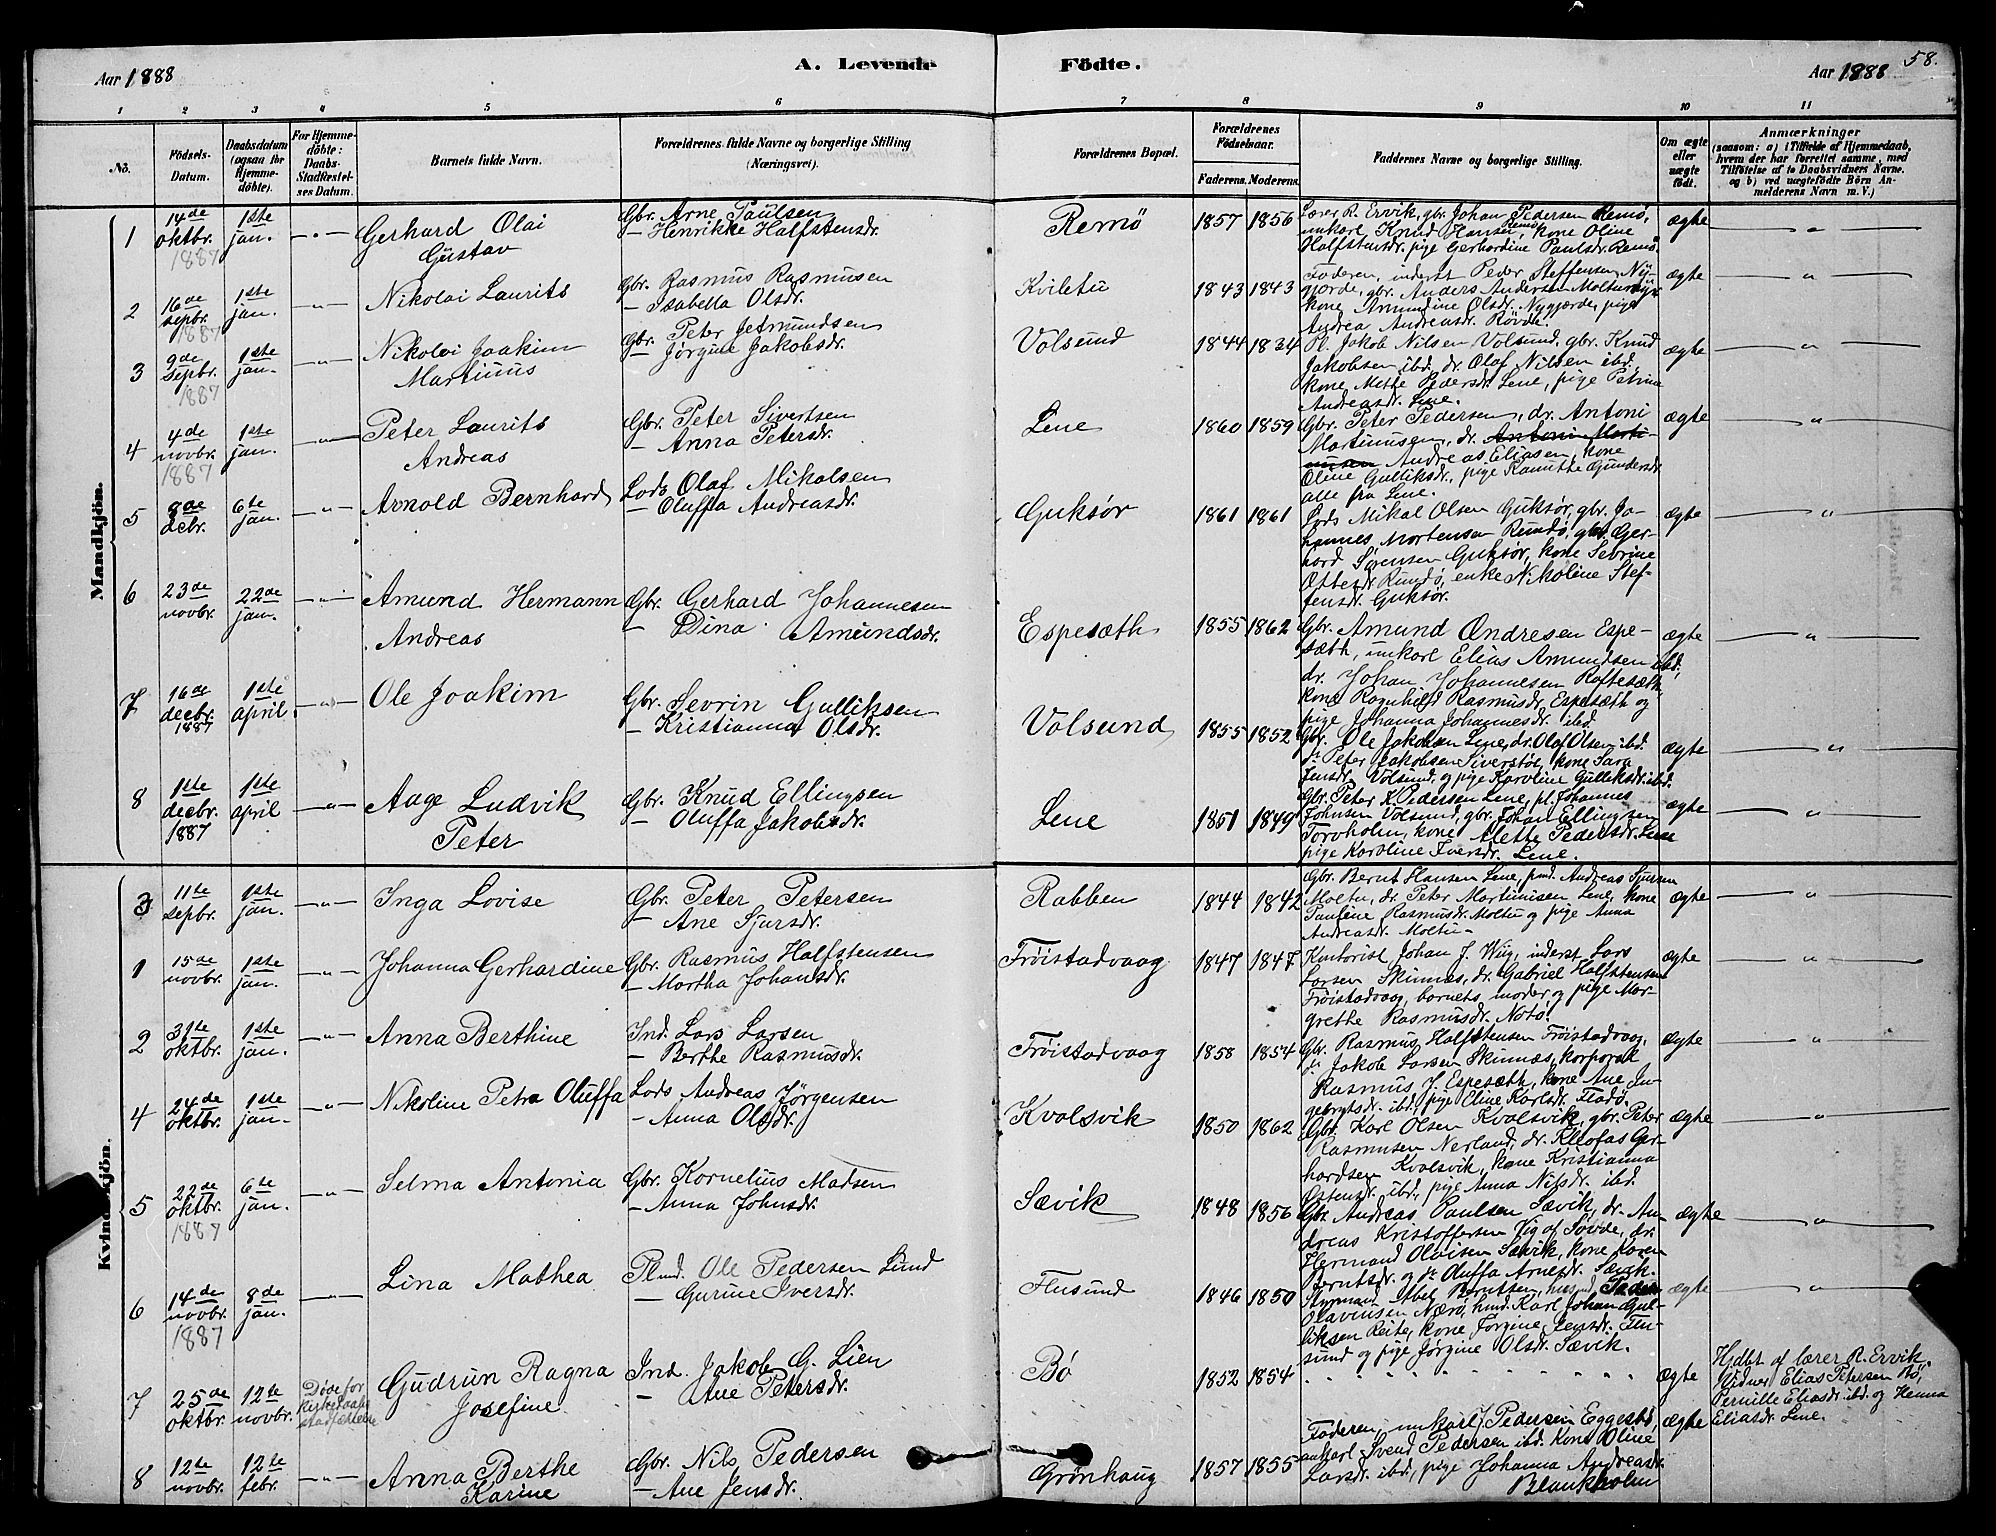 Aar 1888
A. Levende Födte.
Aar 1888
58.
1 2 3 4 5 6 7 8 9 10 11
No.
Födsels-Datum.
Daabsdatum (ogsaa for Hjemme-döbte).
For Hjemme-döbte: Daabs-Stadfæstel-ses Datum.
Barnets fulde Navn.
Forældrenes fulde Navne og borgerlige Stilling (Næringsvei).
Forældrenes Bopæl.
Forældrenes Födselsaar.
Faderens. Moderens.
Faddernes Navne og borgerlige Stilling.
Om ægte eller uægte födt.
Anmærkninger
(saasom: a) i Tilfælde af Hjemmedaab, hvem der har forrettet samme, med Tilföielse af to Daabsvidners Navne. og b) ved uægtefödte Börn An-melderens Navn m. V.)
Mandkjön.
1 14de oktbr. 1887 1ste jan. Gerhard Olai Gustav
Gbr. Arne Paulsen
- Henrikke Halfstensdr.
Remø 1857 1856
Lærer R. Ervik, gbr. Johan Pedersen Remø,
unkarl Knud Hansen Remø, kone Oline
Halfstensdr. pige Gerhardine Paulsdr. Remø
ægte
2 16de sepbr. 1887 1ste jan. Nikolai Laurits
Gbr. Rasmus Rasmusen
- Isabella Olsdr.
Kviletu 1843 1843
Faderen, inderst Peder Steffensen Ny-
gjærde, gbr. Anders Andersen Moltumyr
kone Amundine Olsdr. Nygjærde, pige
Andrea Andreasdr. Røvde.
ægte
3 9de sepbr. 1887 1ste jan. Nikolai Joakim Martinus
Gbr. Peter Jetmundsen
- Jørgine Jakobsdr.
Volsund 1844 1834
Pl. Jakob Nilsen Volsund, gbr. Knud
Jakobsen ibd. dr. Olaf Nilsen ibd.
kone Mette Pedersdr. Lene, pige Petrina
Andreasdr. Lene.
ægte
4 4de novbr. 1887 1ste jan. Peter Laurits Andreas
Gbr. Peter Sivertsen
- Anna Petersdr.
Lene 1860 1859
Gbr. Peter Pedersen, dr. Antoni
Martinusen, dr. Antoni Marti-
nusen Andreas Eliasen, kone
Oline Gulliksdr., pige Ranuthe Gundersdr.
alle fra Lene.
ægte
5 8de decbr. 6te jan. Arnold Bernhard
Lods Olaf Mikalsen
- Oluffa Andreasdr.
Guksør 1861 1861
Lods Mikal Olsen Guksør, gbr. Jo-
hannes Mortensen Rundø, gbr. Ger-
hard Sørensen Guksør, kone Sebrine
Ottesdr. Rundø, enke Nikoline Stef-
fensdr. Guksør.
ægte
6 23de novbr. 22de jan. Amund Hermann Andreas
Gbr. Gerhard Johannesen
- Dina Amundsdr.
Espesæth 1855 1862
Gbr. Amund Andresen Espe-
sæth, unkarl Elias Amundsen ibd.,
dr. Johan Johannesen Roftesæth,
kone Ragnhild Rasmusdr. Espesæth og
pige Johanna Johannesdr. ibd.
ægte
7 16de decbr. 1887 1ste april Ole Joakim
Gbr. Sevrin Gulliksen
- Kristianna Olsdr.
Volsund 1855 1852
Gbr. Ole Jakobsen Lene, dr. Olaf Olsen ibd.
dr. Peter Jakobsen Siverstøl, kone Sara
Jensdr. Volsund, og pige Karoline Gulleksdr. ibd.
ægte
8 1ste decbr. 1887 1ste april Aage Ludvik Peter
Gbr. Knud Ellingsen
- Oluffa Jakobsdr.
Lene 1851 1849
Gbr. Peter K. Pedersen Lene, pl. Johannes
Johnsen Volsund, gbr. Johan Ellingsen
Torvholm, kone Mette Pedersdr. Lene
pige Karoline Iversdr. Lene.
ægte
Kvindekjön.
3 11te sepbr. 1ste jan. Inga Lovise
Gbr. Peter Petersen
- Ane Sjursdr.
Rabben 1844 1842
Gbr. Bernt Hansen Lene, pmd. Andreas Sjursen
Moltu, dr. Peter Martinusen Lene, kone
Pauline Rasmusdr. Moltu og pige Anna
Andreasdr. Moltu
ægte
1 15de novbr. 1ste jan. Johanna Gerhardine
Gbr. Rasmus Halfstensen
- Martha Johansdr.
Frøistadvaag 1847 1847
Kontorist Johan J. Wiig, inderst Lars
Larsen Skinnes, dr. Gabriel Halfstensen
Frøistadvaag, barnets moder og pige Mar-
grethe Rasmusdr. Notø.
ægte
2 31te oktbr. 1ste jan. Anna Berthine
Ind. Lars Larsen
- Berthe Rasmusdr.
Frøistadvaag 1858 1854
Gbr. Rasmus Halfstensen Frøistadvaag,
dr. Jakob Larsen Skinnes, korporal
Rasmus J. Espesæth, kone Ane In-
gebrgtsdr. ibd., pige Eline Karlsdr. Fladø.
ægte
4 24de oktbr. 1ste jan. Nikoline Petra Oluffa
Lods Andreas Jørgensen
- Anna Olsdr.
Kvalsvik 1850 1862
Gbr. Karl Olsen Kvalsvik, gbr. Peter
Rasmusen Nerland, dr. Kleofas Ger-
hardsen Kvalsvik, kone Kristianna
Østensdr. ibd., pige Anna Nilsdr. ibd.
ægte
5 22de oktbr. 1887 6te jan. Selma Antonia
Gbr. Kornelius Madsen
- Anna Johnsdr.
Sævik 1848 1856
Gbr. Andreas Paulsen Sævik, dr. An-
dreas Kristoffersen Vig af Søvde, dr.
Hermand Olaisen Sævik, kone Karen
Berntsdr. og dr. Oluffa Arnesdr. Sævik.
ægte
6 14de novbr. 1887 8de jan. Lina Mathea
Plmd. Ole Pedersen Lund
- Gurine Iversdr.
Flusund 1846 1850
Berntsen, Peder
Olavinsen Nærø, hmd. Karl Johan Gul-
liksen Reite, kone Jorgine Jensdr. Flu-
sund og pige Jørgine Olsdr. Sævik.
ægte
7 25de oktbr. 12te novbr. Døde før kirkedaabs stadfæstelse Gudrun Ragna Josefine
Ind. Jakob G. Lien
- Ane Petersdr.
Bø 1852 1854
ægte
Hjdbt. af lærer R. Ervik,
Vidner Elias Petersen Bø,
Pernille Eliasdr. ibd. og Henna
Eliasdr. Lene.
8 12te novbr. 12te febr. Anna Berthe Karine
Gbr. Nils Pedersen
- Ane Jensdr.
Grønhaug 1857 1855
Faderen, unkarl J. Pedersen Eggesbø,
unkarl Svend Pedersen ibd. Kone Oline
Larsdr. ibd., pige Johanna Andreasdr.
Blankholm
ægte